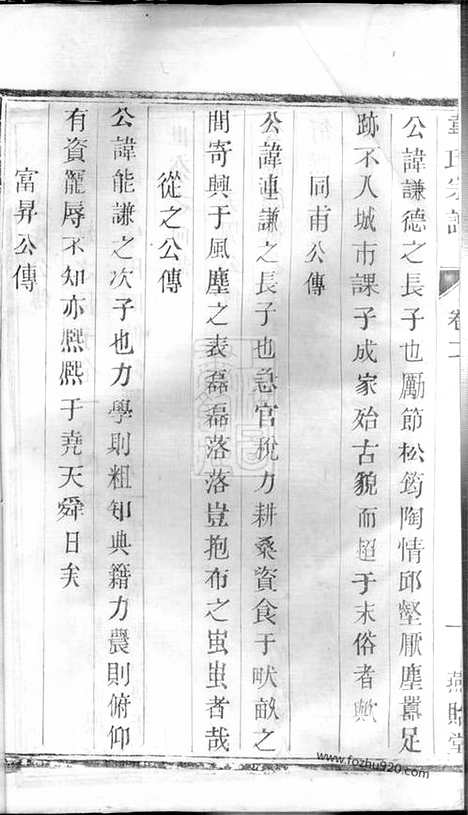 公諱謙德之長子也勵節松筠陶情邱壑厭塵囂足
跡不入城市課子成家始古貌而超于末俗者歟
同甫公傳
公諱連謙之長子也急官稅力耕桑資食于畎畝之
間寄興于風塵之表磊磊落落豈抱布之蚩蚩者哉
從之公傳
公諱能謙之次子也力學則粗知典籍力農則俯仰
有資寵辱不知亦熈熈于堯天舜日矣
富昇公傳
氏宗譜
卷二
燕貽堂
www.fozhu920.com